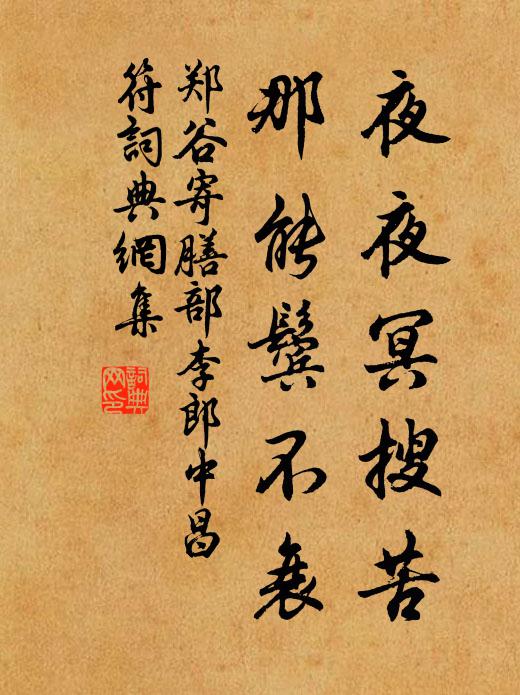 夜夜冥搜苦
那能鬓不衰
郑谷寄膳部李郎中昌
符詞典網集
詞典
网印